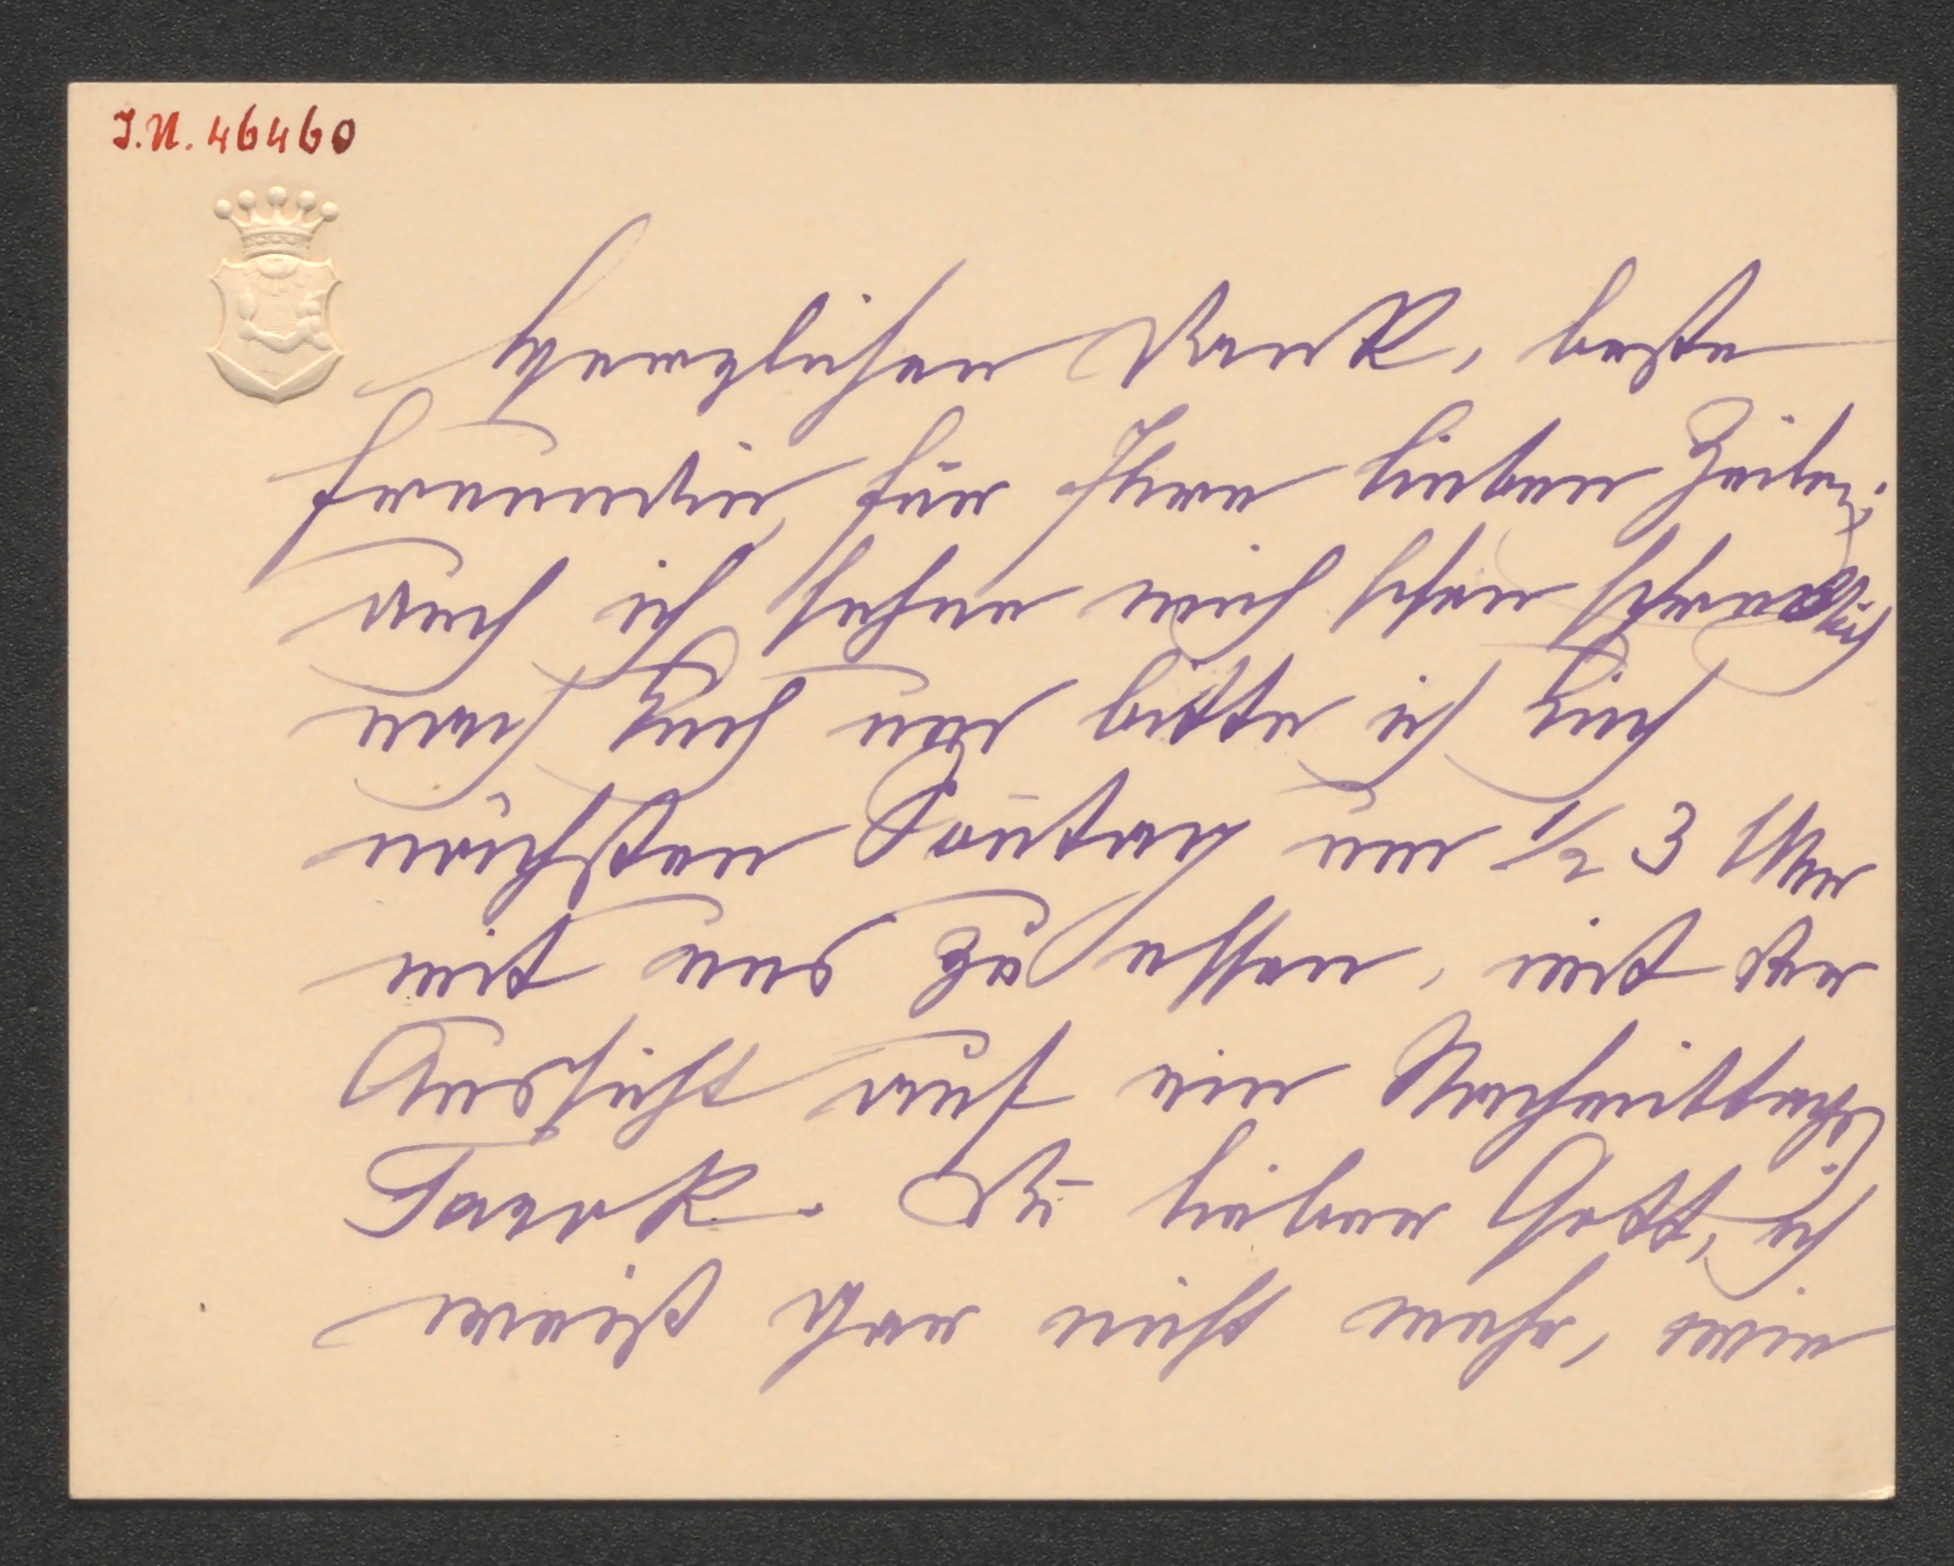 J.N. 46460
Herzlichen Dank, beste
Freundin, für Ihre lieben Zeilen;
auch ich sehne mich schon schrecklich
nach Euch und bitte ich Euch
nächsten Soñtag um 1/2 3 Uhr
mit uns zu essen, mit der
Aussicht auf ein Nachmittags
Tarok. Du lieber Gott, ich
weiß gar nicht mehr, wie